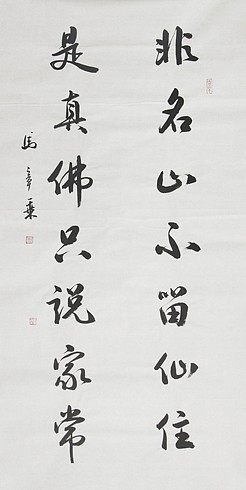 非名山不留仙住
是真佛只说家常
馬章乘